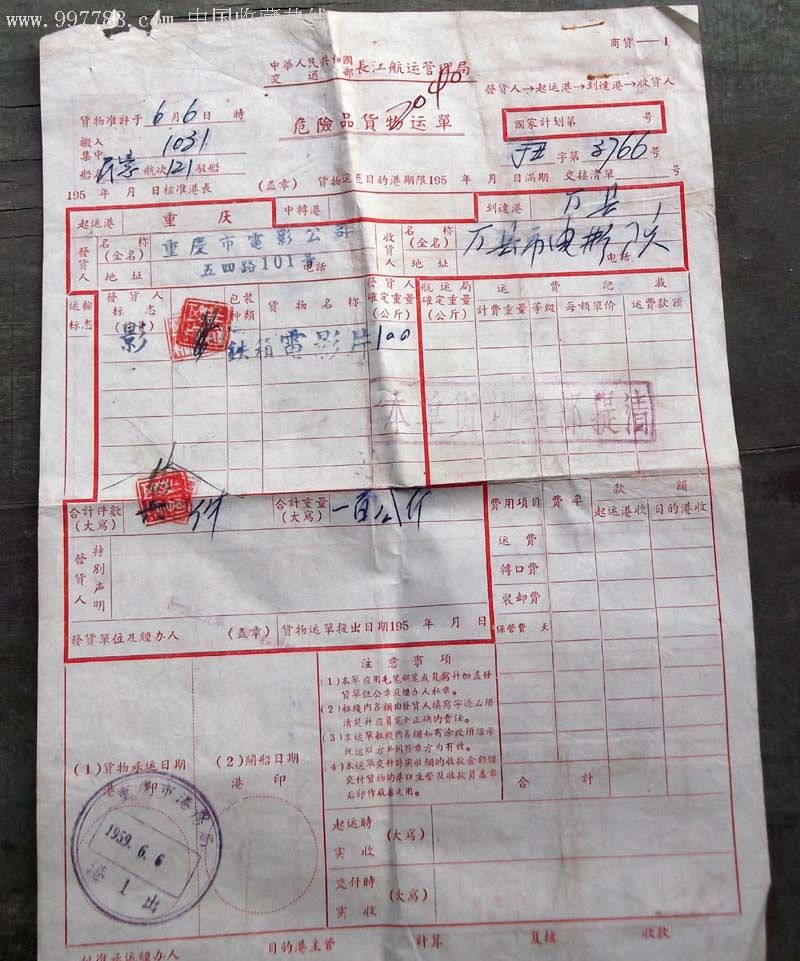 www.997788.com 中国收藏热线
商貨—1
中華人民共和國
交通部 長江航运管理局
2040
發貨人→起运港→到達港→收貨人
危險品貨物运單
國家計划第 号
貨物准許于 6月6日 時
搬入
集中 1031
船 航次121駁船
字第3766号
195 年 月 日核准港長 (盖章) 貨物运至目的港期限195 年 月 日滿期 交接清單
起运港 重庆 中轉港 到達港 万县
發貨人 名称(全名) 重慶市電影公司
地址 五四路101号 電話
收貨人 名称(全名) 万县市电影
地址 電話
运輸标志 發貨人标志(影) 包装种類 貨物名称 發貨人確定重量(公斤) 航运局確定重量(公斤) 运費記載
計費重量 等級 每頓單价 运費款額
影 鉄箱 電影片 100
本单货物全部提清
合計件數(大寫) 件 合計重量(大寫) 一百公斤
發貨人特別声明
費用項目 費率 款額
起运港收 目的港收
运費
轉口費
装卸費
保管費 天
合計
發貨單位及經办人 (盖章) 貨物运單提出日期195 年 月 日
注意事項
(1)本單应用毛笔鋼笔或复寫并加盖發貨單位公章及經办人私章。
(2)粗綫内各欄由發貨人填寫字迹必須清楚并应負完全正确的責任。
(3)本运單粗綫内各欄如有涂改須經承托运双方共同盖章方为有效。
(4)本运單交付時实收欄的收款金額經交付貨物的港口主管及收款員盖章后即作收据之用。
(1)貨物承运日期
港印
(2)開船日期
港印
重慶市港務局
1959.6.6
港1出
起运時实收 (大寫)
交付時实收 (大寫)
批准承运經办人 目的港主管 計算 复核 收款